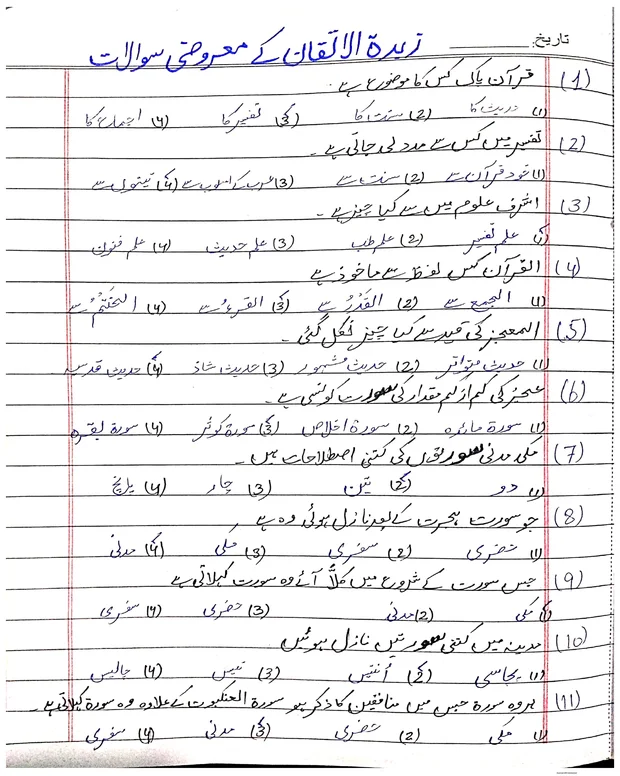 تاریخ:
زبدۃ الاتقان کے معروضی سوالات
(1) قرآن پاک کس کا موضوع ہے۔
(1) حدیث کا (2) سنت کا (3) تفسیر کا (4) اجماع کا
(2) تفسیر میں کس سے مدد لی جاتی ہے۔
(1) خود قرآن سے (2) سنت سے (3) عرب کے اسلوب سے (4) تینوں سے
(3) اشرف علوم میں سے کیا چیز ہے۔
(1) علم تفسیر (2) علم طب (3) علم حدیث (4) علم فنون
(4) القرآن کس لفظ سے ماخوذ ہے
(1) الجمع سے (2) القدر سے (3) القرء سے (4) الختم سے
(5) المعجز کی قید سے کیا چیز نکل گئی۔
(1) حدیث متواتر (2) حدیث مشہور (3) حدیث شاذ (4) حدیث قدسیہ
(6) عجز کی کم از کم مقدار کی سورت کونسی ہے۔
(1) سورۃ مائدہ (2) سورۃ اخلاص (3) سورۃ کوثر (4) سورۃ بقرہ
(7) مکی مدنی سورتوں کی کتنی اصطلاحات ہیں۔
(1) دو (2) تین (3) چار (4) پانچ
(8) جو سورت ہجرت کے بعد نازل ہوئی وہ ہے
(1) حضری (2) سفری (3) مکی (4) مدنی
(9) جس سورت کے شروع میں کلَّا آئے وہ سورت کہلاتی ہے
(1) مکی (2) مدنی (3) حضری (4) سفری
(10) مدینہ میں کتنی سورتیں نازل ہوئیں
(1) پچاسی (2) اُنتیس (3) تیس (4) چالیس
(11) ہر وہ سورۃ جس میں منافقین کا ذکر ہو سورۃ العنکبوت کے علاوہ وہ سورۃ کہلاتی ہے۔
(1) مکی (2) حضری (3) مدنی (4) سفری